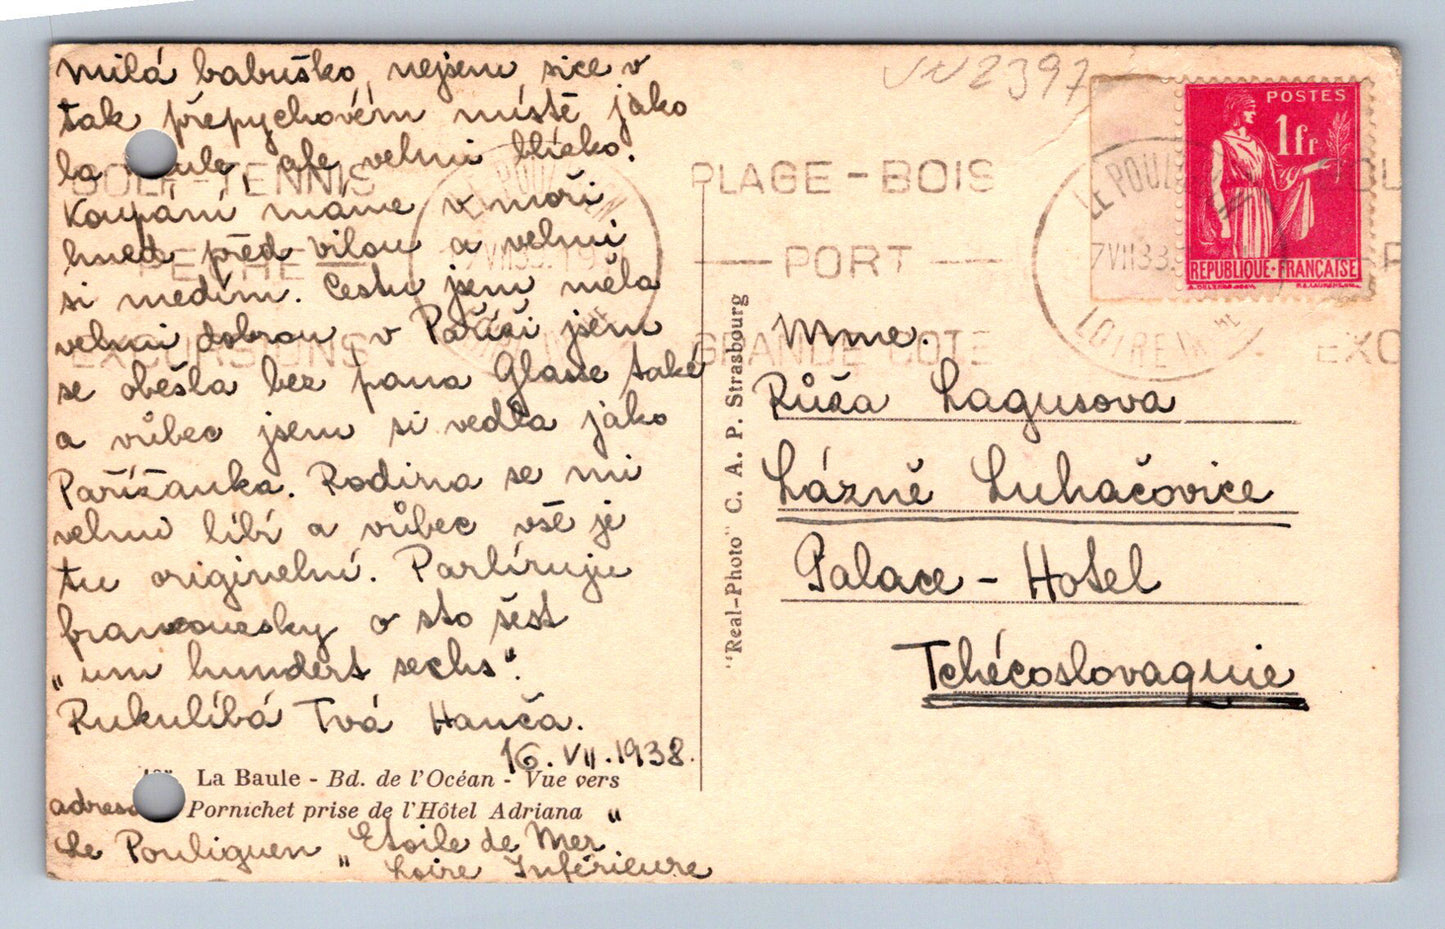 Milá babuško, nejsem sice v
tak přepychovém místě jako
la Baule, ale velmi blízko.
Koupání máme v moři
hned před vilou a velmi
si medím. Cestu jsem měla
velmi dobrou v Paříži jsem
se obešla bez pana Glasse také
a vůbec jsem si vedla jako
Pařížanka. Rodina se mi
velmi líbí a vůbec vše je
tu originelní. Parlíruju
francouzsky o sto šest
„um hundert sechs".
Rukulíbá Tvá Hanča.
16. VII. 1938.
La Baule - Bd. de l'Océan - Vue vers
Pornichet prise de l'Hôtel Adriana
adresa
"
Le Pouliguen „Etoile de Mer
Loire Inférieure
"Real-Photo" C. A. P. Strasbourg
2397
GOLF-TENNIS
PECHE —
EXCURSIONS
LE POULIGUEN
PLAGE - BOIS
— PORT —
GRANDE COTE
LE POUL
LOIRE INRE
EXC
POSTES
1fr
REPUBLIQUE·FRANÇAISE
Mme.
Růža Lagusova
Lázně Luhačovice
Palace - Hotel
Tchécoslovaquie